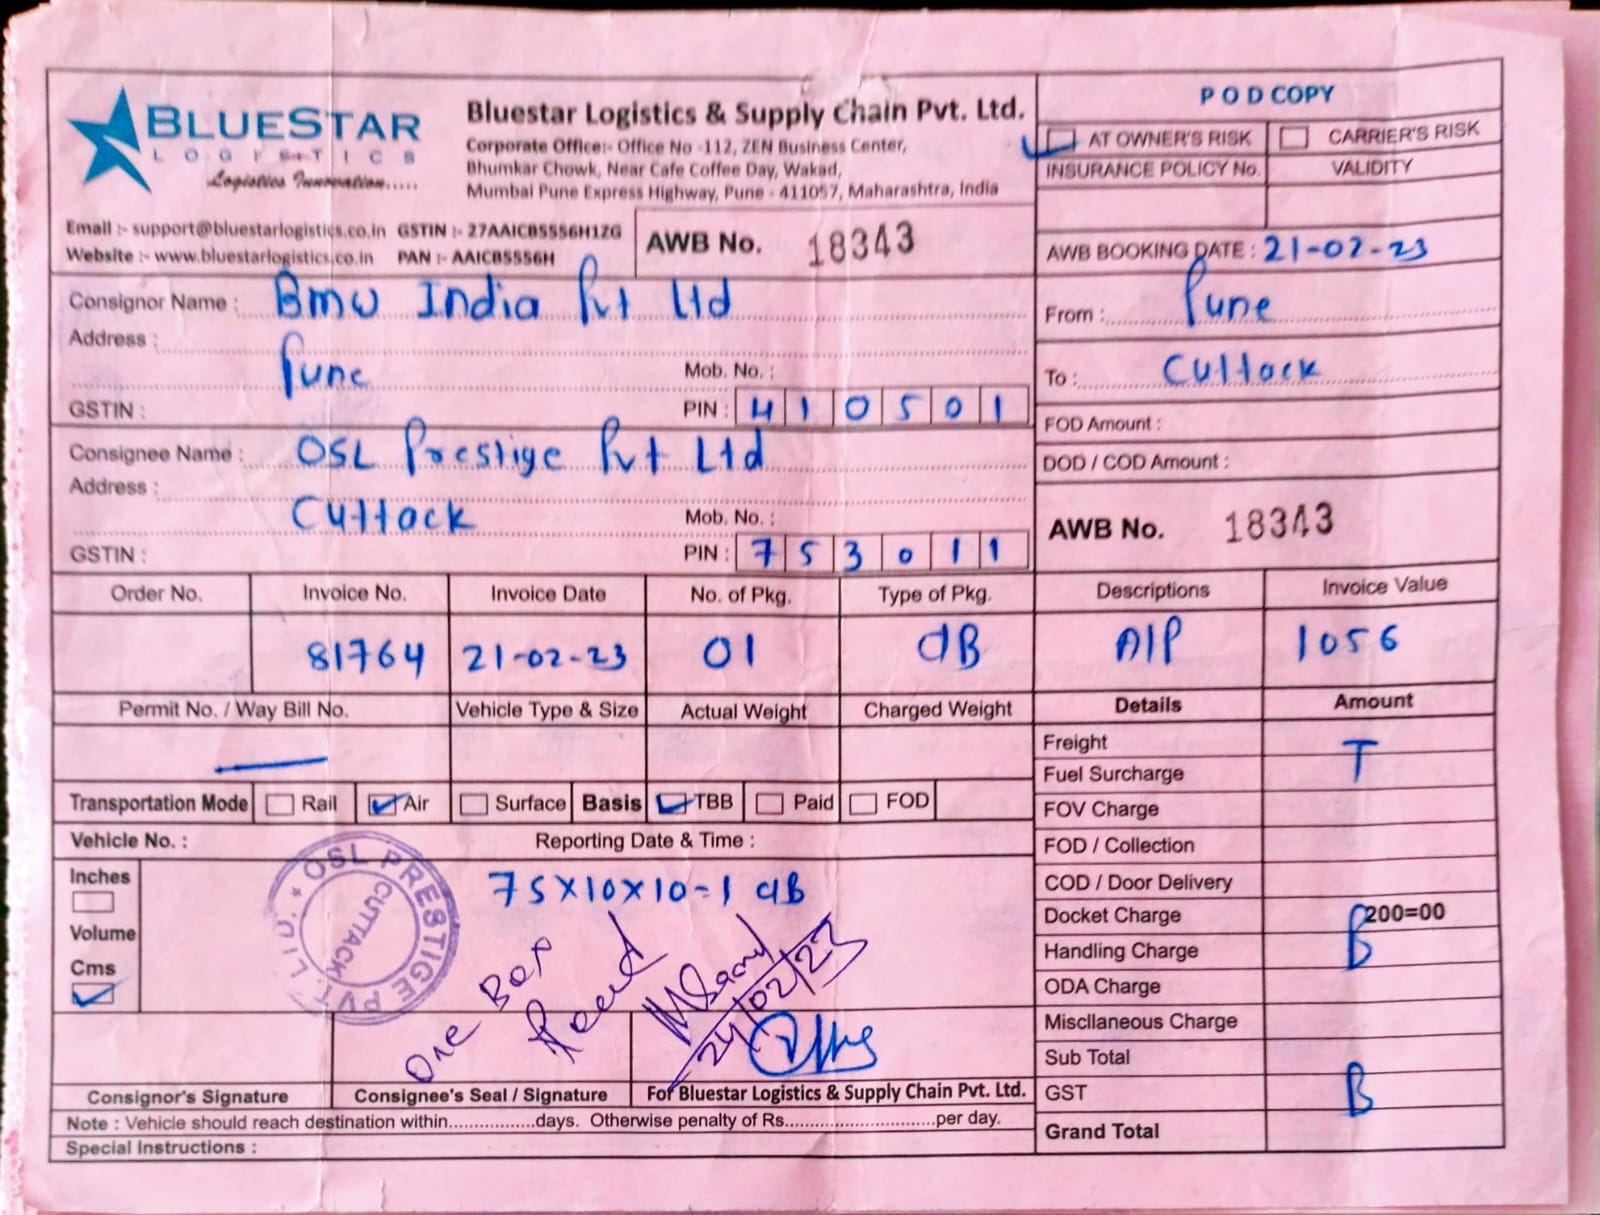 BLUESTAR
LOGISTICS
Logistics Innovation.....
Bluestar Logistics & Supply Chain Pvt. Ltd.
Corporate Office:- Office No -112, ZEN Business Center,
Bhumkar Chowk, Near Cafe Coffee Day, Wakad,
Mumbai Pune Express Highway, Pune - 411057, Maharashtra, India
Email :- support@bluestarlogistics.co.in GSTIN :- 27AAICB5556H1ZG
Website :- www.bluestarlogistics.co.in PAN :- AAICB5556H
AWB No. 18343
P O D COPY
AT OWNER'S RISK CARRIER'S RISK
INSURANCE POLICY No. VALIDITY
AWB BOOKING DATE : 21-02-23
Consignor Name : BMW India Pvt Ltd
Address :
Pune Mob. No. :
GSTIN : PIN : 410501
From : Pune
To : Cuttack
Consignee Name : OSL Prestige Pvt Ltd
Address :
Cuttack Mob. No. :
GSTIN : PIN : 753011
FOD Amount :
DOD / COD Amount :
AWB No. 18343
Order No. Invoice No. Invoice Date No. of Pkg. Type of Pkg. Descriptions Invoice Value
81764 21-02-23 01 CB AIP 1056
Permit No. / Way Bill No. Vehicle Type & Size Actual Weight Charged Weight Details Amount
Freight T
Fuel Surcharge
Transportation Mode Rail Air Surface Basis TBB Paid FOD
FOV Charge
Vehicle No. : Reporting Date & Time :
FOD / Collection
Inches
75X10X10=1 CB
COD / Door Delivery
Docket Charge 200=00
Volume
Handling Charge B
Cms
ODA Charge
OSL PRESTIGE PVT. LTD.
CUTTACK
One Box
Received
24/02/23
Miscllaneous Charge
Sub Total
Consignor's Signature Consignee's Seal / Signature For Bluestar Logistics & Supply Chain Pvt. Ltd.
GST B
Note : Vehicle should reach destination within.................days. Otherwise penalty of Rs...............................per day.
Grand Total
Special Instructions :